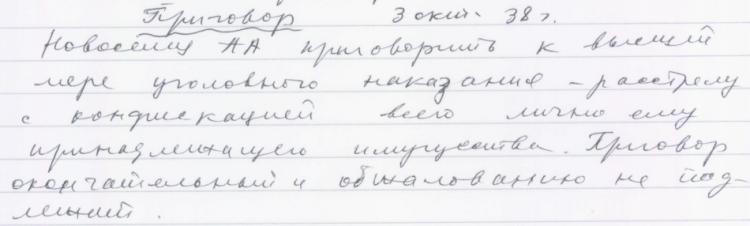 Приговор 3 окт. 38 г.
Новосёлц АА приговорить к высшей
мере уголовного наказания – расстрелу
с конфискацией всего лично ему
принадлежащего имущества. Приговор
окончательный и обжалованию не под-
лежит.